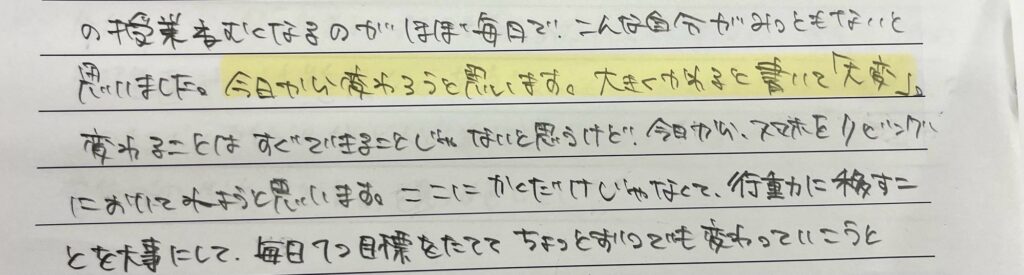 の授業もねむくなるのがほぼ毎日で、こんな自分がみっともないと
思いました。今日から変わろうと思います。大きくかわると書いて「大変」。
変わることはすぐできることじゃないと思うけど、今日から、スマホをリビング
においてねようと思います。ここにかくだけじゃなくて、行動に移すこ
とを大事にして、毎日1つ目標をたててちょっとずつでも変わっていこうと